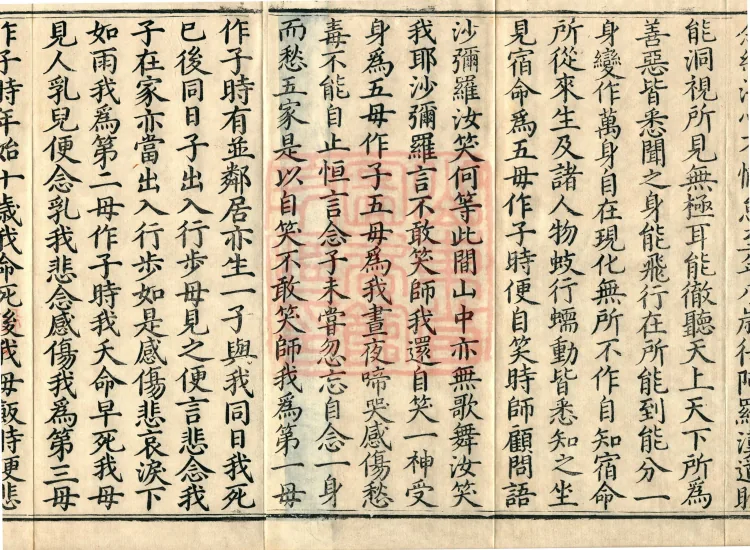 能洞視所見無極耳能徹聽天上天下所為
善惡皆悉聞之身能飛行在所能到能分一
身變作萬身自在現化無所不作自知宿命
所從來生及諸人物蚑行蠕動皆悉知之坐
見宿命為五母作子時便自笑時師顧問語
沙彌羅汝笑何等此間山中亦無歌舞汝笑
我耶沙彌羅言不敢笑師我還自笑一神受
身為五母作子五母為我晝夜啼哭感傷愁
毒不能自止恒言念子未甞忽忘自念一身
而愁五家是以自笑不敢笑師我為第一母
作子時有並鄰居亦生一子與我同日我死
已後同日子出入行步母見之便言悲念我
子在家亦當出入行步如是感傷悲哀淚下
如雨我為第二母作子時我夭命早死我母
見人乳兒便念乳我悲念感傷我為第三母
作子時年始十歲我命死後我母飯時便悲